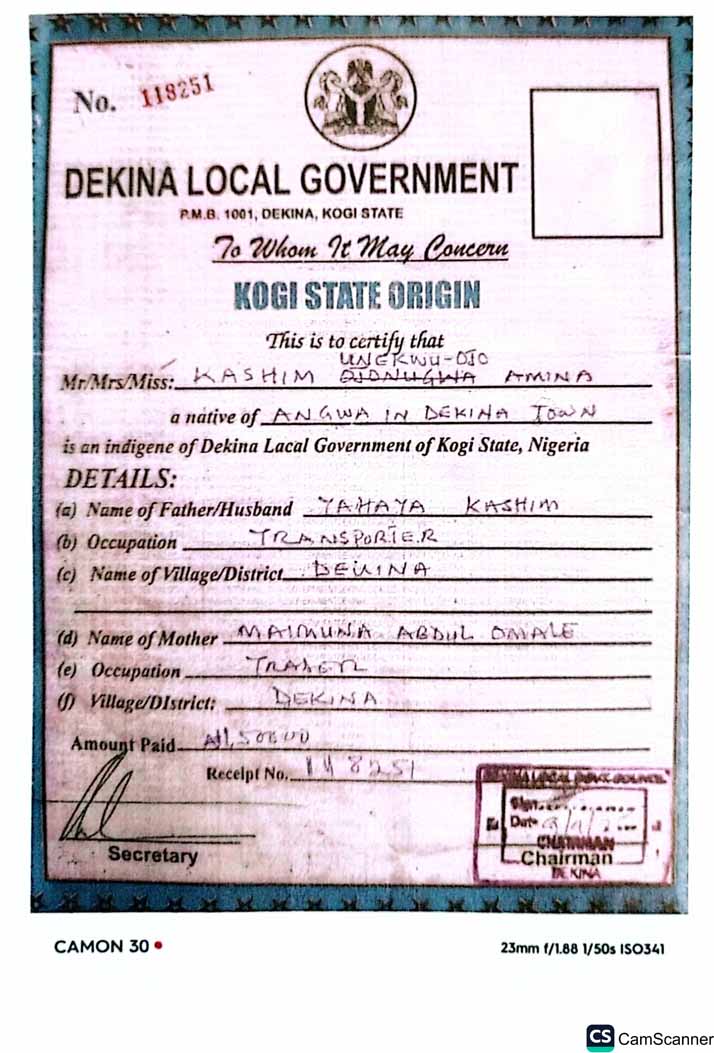 No. 118251
DEKINA LOCAL GOVERNMENT
P.M.B. 1001, DEKINA, KOGI STATE
To Whom It May Concern
KOGI STATE ORIGIN
This is to certify that
UNEKWU-OJO
Mr/Mrs/Miss: KASHIM OJONUGWA AMINA
a native of ANGWA IN DEKINA TOWN
is an indigene of Dekina Lacal Government of Kogi State, Nigeria
DETAILS:
(a) Name of Father/Husband YAHAYA KASHIM
(b) Occupation TRANSPORTER
(c) Name of Village/District DEKINA
(d) Name of Mother MAIMUNA ABDUL OMALE
(e) Occupation TRADER
(f) Village/DIstrict: DEKINA
Amount Paid
Receipt No. 118251
DEKINA LOCAL GOVT. COUNCIL
Sign
Date
CHAIRMAN
Chairman
DEKINA
Secretary
CAMON 30
23mm f/1.88 1/50s ISO341
CS CamScanner